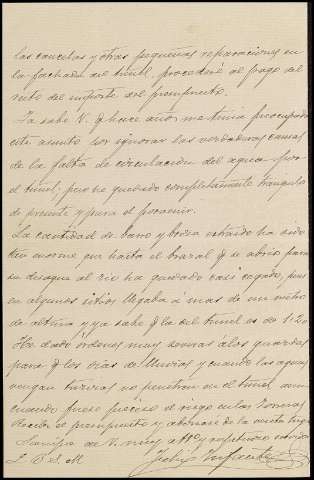 las cancelas y otras pequeñas reparaciones en
la fachada del túnel, procederé al pago del
resto del importe del presupuesto.
Ya sabe V. q hace años me tenía preocupado
este asunto por ignorar las verdaderas causas
de la falta de circulación del agua por
el túnel; pero he quedado completamente tranquilo
de presente y para el porvenir.
La cantidad de barro y broza extraido ha sido
tan enorme que hasta el brazal q se abrió para
su desague al río ha quedado casi cegado, pues
en algunos sitios llegaba á mas de un metro
de altura y ya sabe q la del túnel es de 1.20
He dado órdenes muy severas á los guardas
para q los dias de lluvias y cuando las aguas
vengan turbias no penetren en el túnel aun
cuando fuese preciso el riego en las Torres
el presupuesto y abonase de la
de V. muy att y respetuoso
Q B S M